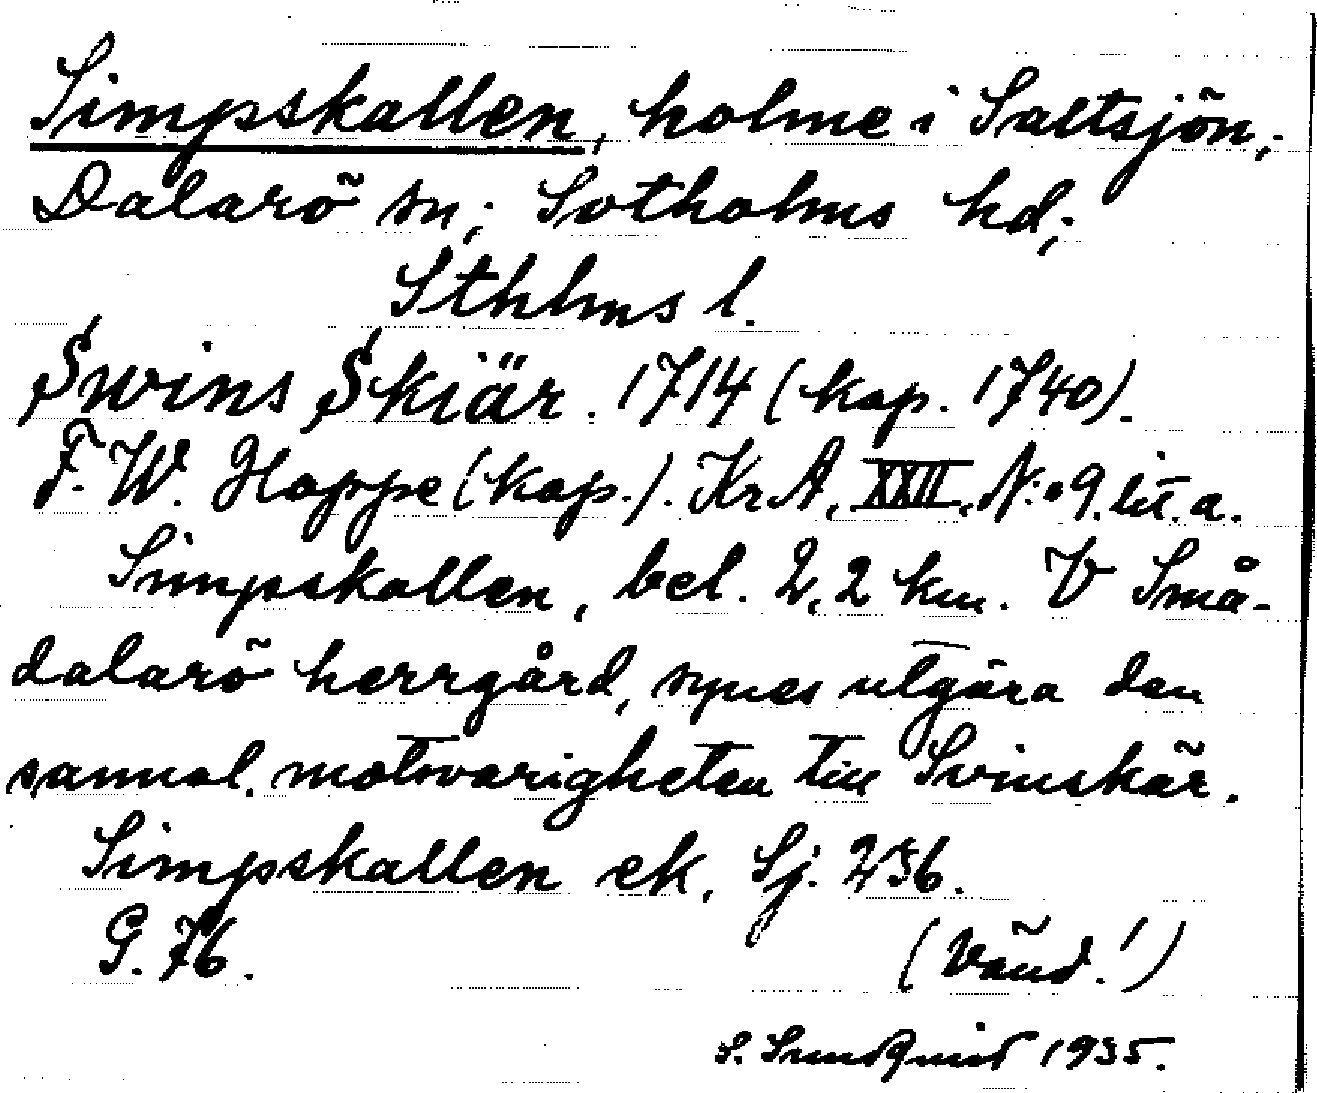 Simpskallen, holme i Saltsjön,
Dalarö sn; Sotholms hd;
Sthlms l.
Swins Skiär. 1714 (kop. 1740).
F. W. Hoppe (kop.). Kr A, XXII, N:o 9. lit. a.
Simpskallen, bel. 2,2 km. V Små-
dalarö herrgård, synes utgöra den
sannol. motsvarigheten till Svinskär.
Simpskallen ek, Sj. 236.
G. 76.
(Vänd!)
S. Sundqvist 1935.